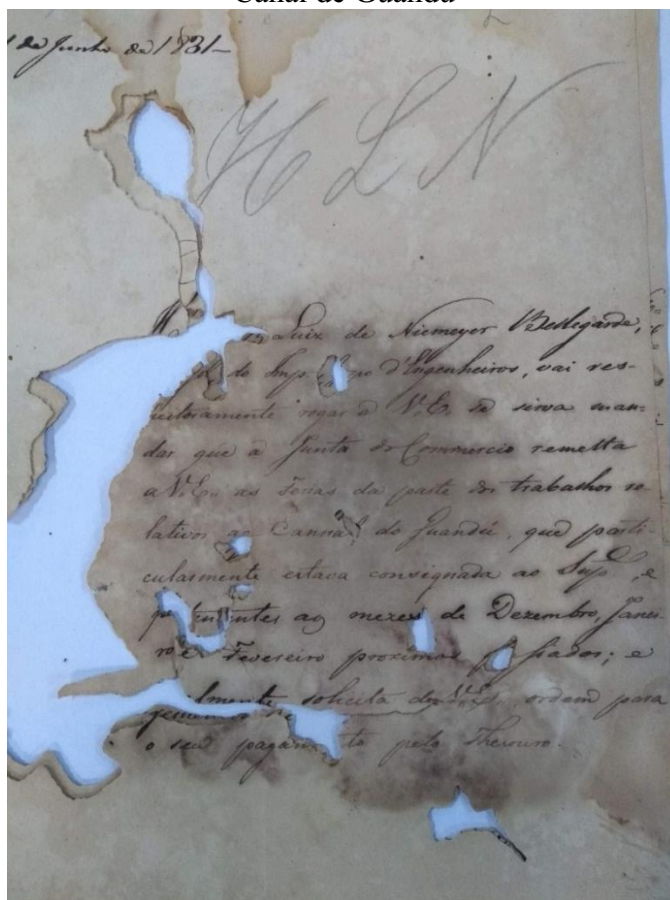 Canal do Guandu
de Junho de 1831—
H L N
Luiz de Niemeyer Bellegarde,
do Imp. d'Engenheiros, vai res-
peitosamente rogar a V.E. se sirva man-
dar que a Junta do Commercio remetta
a V.E. as Ferias da parte dos trabalhos re-
lativos ao Cannal do Guandú, que parti-
cularmente estava consignada ao Supe., e
pertencentes aos mezes de Dezembro, Janei-
ro e Fevereiro proximos passados; e
solicita de V.E. ordem para
o seu pagamento pelo Thesouro.